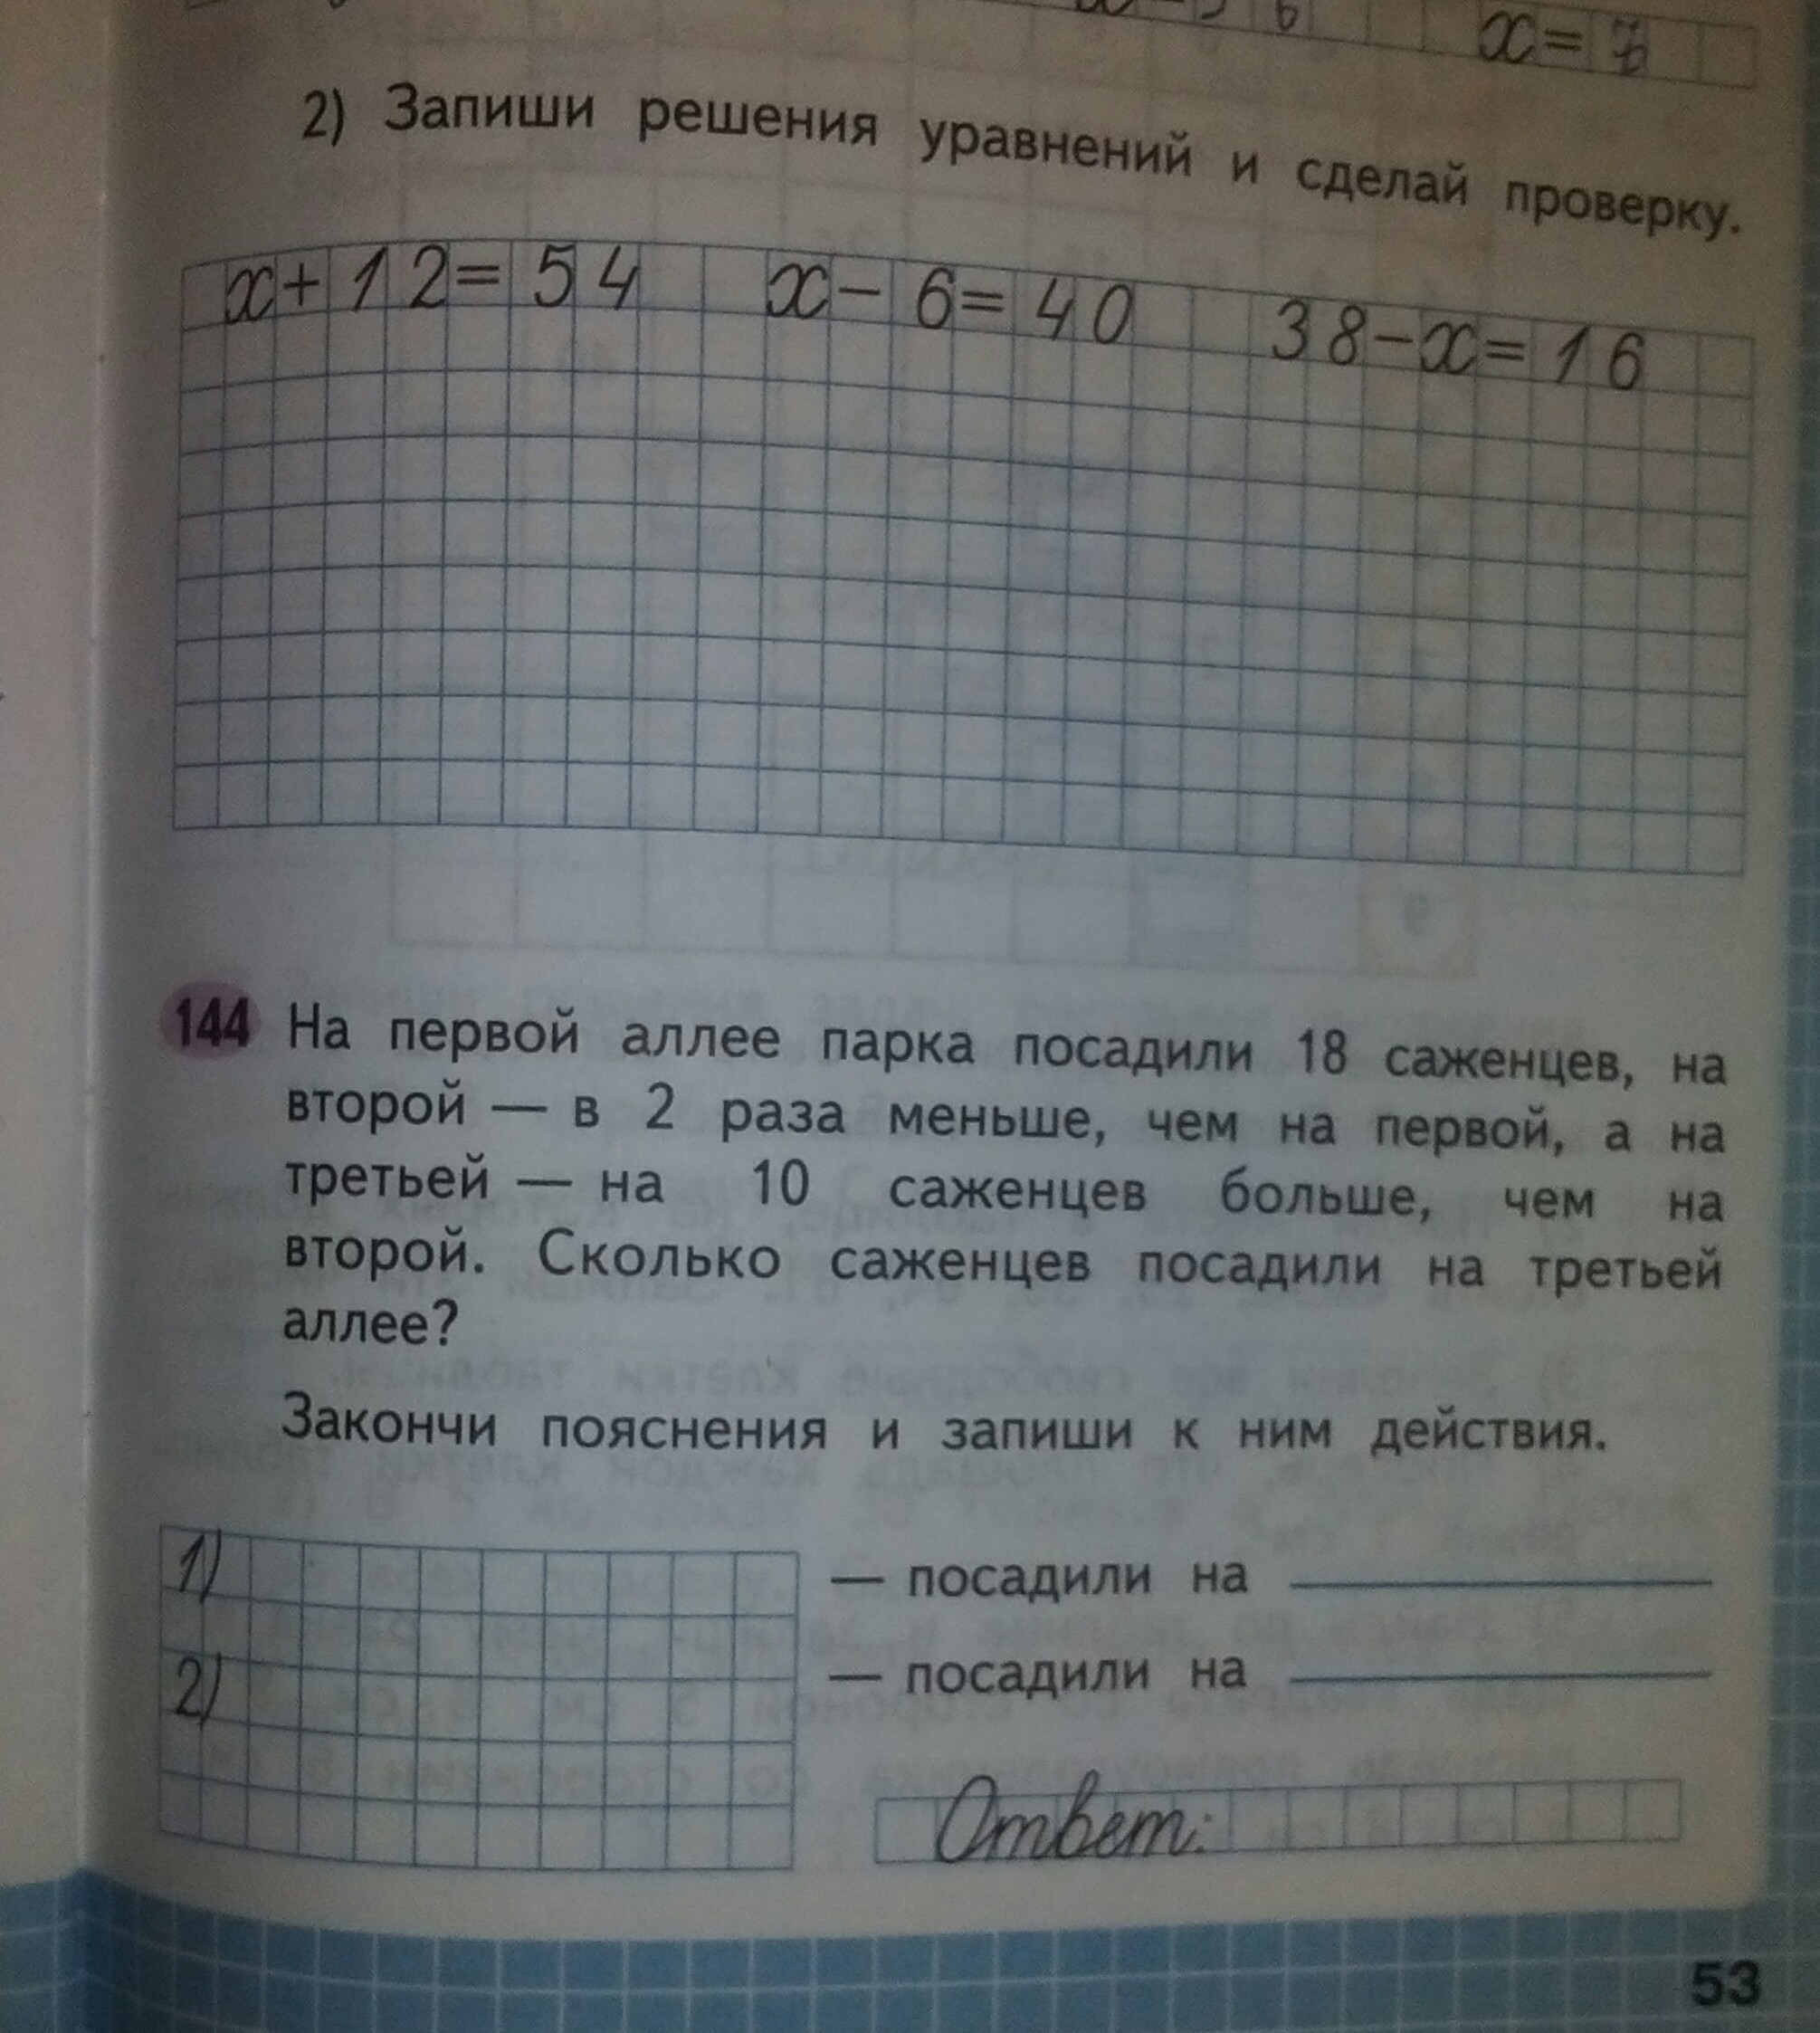 x = 7
2) Запиши решения уравнений и сделай проверку.
x + 12 = 54 x − 6 = 40 38 − x = 16
144 На первой аллее парка посадили 18 саженцев, на
второй — в 2 раза меньше, чем на первой, а на
третьей — на 10 саженцев больше, чем на
второй. Сколько саженцев посадили на третьей
аллее?
Закончи пояснения и запиши к ним действия.
1) — посадили на
2) — посадили на
Ответ:
53